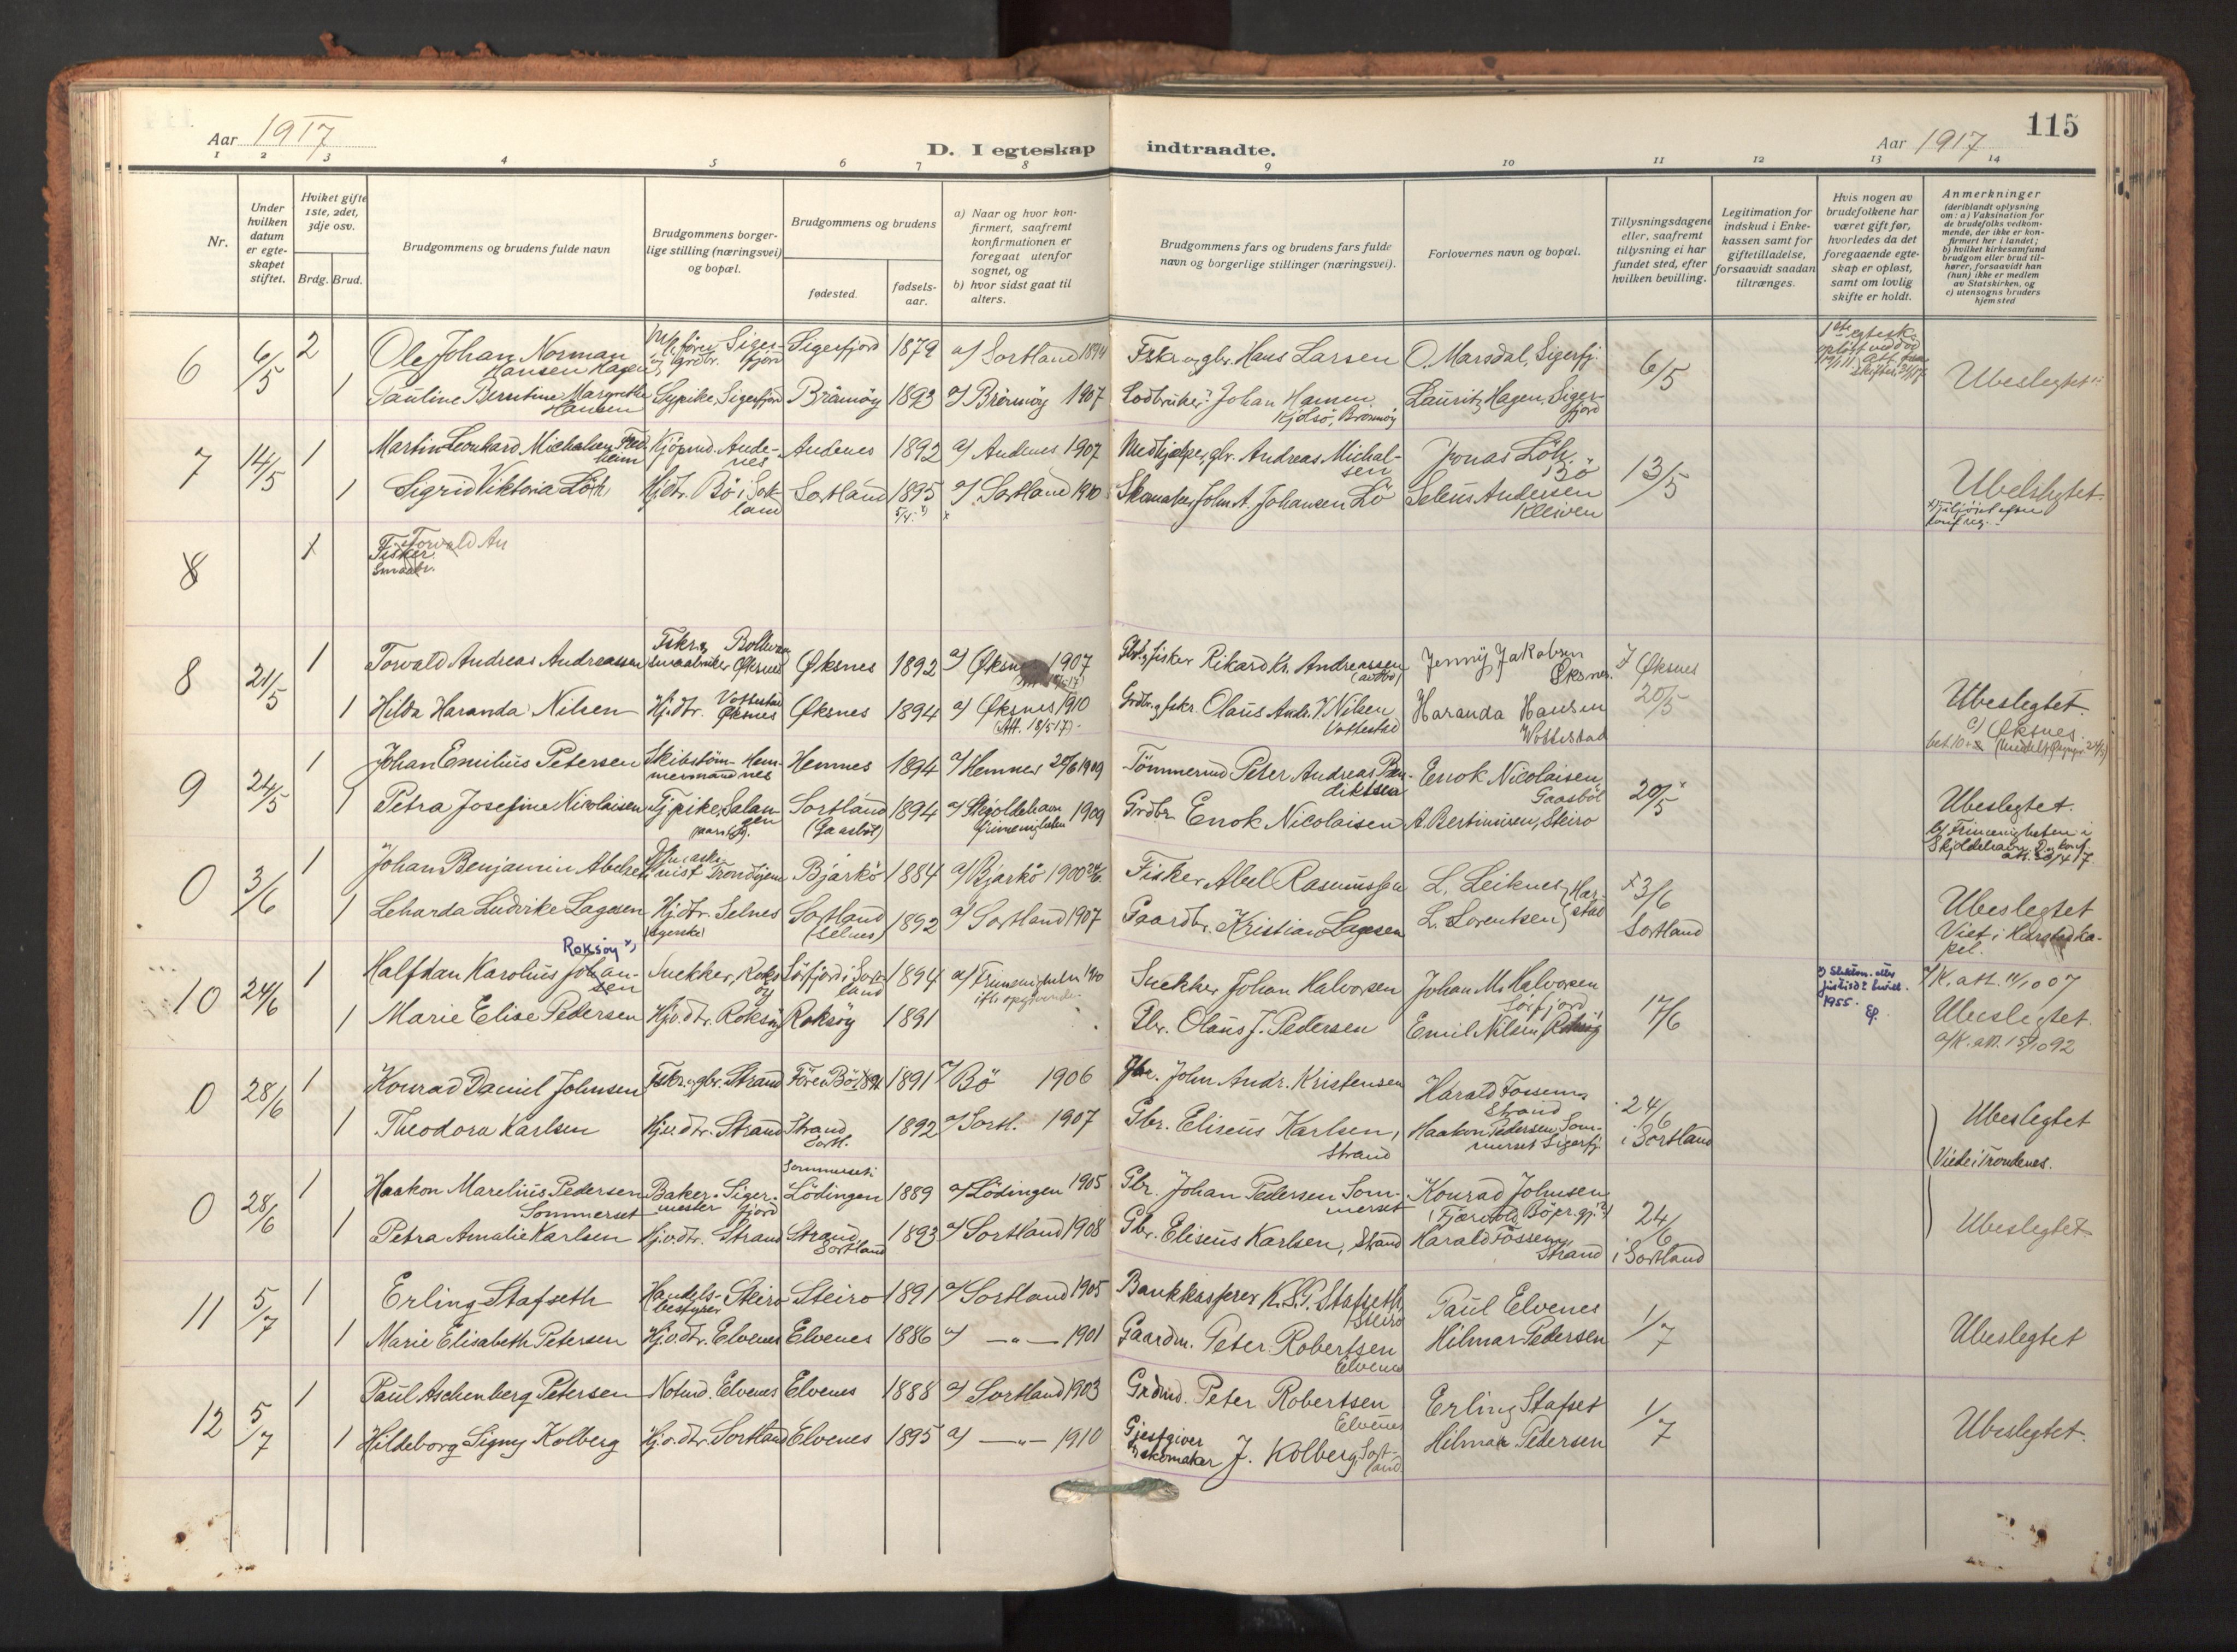 115
Aar 1917
D. I egteskap
indtraadte.
Aar 1917
1 2 3 4 5 6 7 8 9 10 11 12 13 14
Nr.
Under hvilken datum er egteskapet stiftet.
Hvilket gifte 1ste, 2det, 3dje osv.
Brdg. Brud.
Brudgommens og brudens fulde navn
Brudgommens borgerlige stilling (næringsvei) og bopæl.
Brudgommens og brudens
fødested.
fødselsaar.
a) Naar og hvor konfirmert, saafremt konfirmationen er foregaat utenfor sognet, og
b) hvor sidst gaat til alters.
Brudgommens fars og brudens fars fulde navn og borgerlige stillinger (næringsvei).
Forlovernes navn og bopæl.
Tillysningsdagene eller, saafremt tillysning ei har fundet sted, efter hvilken bevilling.
Legitimation for indskud i Enkekassen samt for giftetilladelse, forsaavidt saadan tiltrænges.
Hvis nogen av brudefolkene har været gift før, hvorledes da det foregaaende egteskap er opløst, samt om lovlig skifte er holdt.
Anmerkninger (deriblandt oplysning om: a) Vaksination for de brudefolks vedkommende, der ikke er konfirmert her i landet; b) hvilket kirkesamfund brudgom eller brud tilhører, forsaavidt han (hun) ikke er medlem av Statskirken, og c) utensogns bruders hjemsted
6 6/5 2 Ole Johan Norman Hansen Hagen Sigerfjord Sigerfjord 1879 a) Sortland 1894 Fskr. og gbr. Hans Larsen O. Marsdal, Sigerfj. 6/5
1 Pauline Berntine Margrethe Hansen Sypike, Sigerfjord Brømøy 1893 a) Brømøy 1907 Johan Hansen Lauritz Hagen, Sigerfjord Ubeslegtet
7 14/5 1 Martin Leonhard Michalsen Kjøpmd. Andenes Andenes 1892 a) Andenes 1907 gbr. Andreas Michalsen Jonas Löh, Bö 13/5
1 Sigrid Viktoria Löh Hjdtr. Bö i Sortland Sortland 1895 5/4. a) Sortland 1910 Johan A. Johansen Lö Selius Andersen Kleiven Ubeslegtet.
8 1 Torvald An
Fisker
8 21/5 1 Torvald Andreas Andreassen Fskr. og smaabruker Øksnes Øksnes 1892 a) Øksnes 1907 Gbr. og fisker Rikard Kr. Andreassen Jenny Jakobsen Øksnes. I Øksnes
1 Hilda Haranda Nilsen Hj. dtr. Vottestad Øksnes Øksnes 1894 a) Øksnes 1910 (Att. 18/5 17) Grdbr. og fskr. Olaus Andr. V. Nilsen Vottestad Haranda Hansen Vottestad 20/5 Ubeslegtet.
c) Øksnes.
9 24/5 1 Johan Emilius Petersen Skibstömmermand Hemnes Hemnes 1894 a) Hemnes 27/6 1909 Tömmermd Peter Andreas Benediktsen Enok Nicolaisen Gaasböl 20/5
1 Petra Josefine Nicolaisen Tjpike, Salangen Sortland (Gaasböl) 1894 a) Skjoldehavn 1909 Grdbr. Enok Nicolaisen A. Bertinusen, Steiro Ubeslegtet.
b) Frimenigheten i Skjoldehavn.
0 3/6 1 Johan Benjamin Abelsen Trondhjem Bjarkö 1884 a) Bjarkö 1900 Fisker Abel Rasmussen L. Leiknes 3/6
1 Leharda Ludvike Lagesen Hjdtr. Selnes Sortland (Selnes) 1892 a) Sortland 1907 Gaardbr. Kristian Lagesen L. Lorentsen Harstad Sortland Ubeslegtet
Viet i Harstad kapel.
Roksöy
10 24/6 1 Halfdan Karolius Johansen Snekker, Roksöy Sörfjord i Sortland 1894 a) Frimenigheten 1910 Snekker Johan Halvorsen Johan M. Halvorsen Sörfjord 17/6
1 Marie Elise Pedersen Hjv. dtr. Roksöy Roksöy 1891 Gbr. Olaus J. Pedersen Emil Nilsen, Roksöy Ubeslegtet.
1955.
a) K. att. 15/10 92
0 28/6 1 Konrad Daniel Johnsen Fskr. og gbr. Strand Före i Bö 1891 a) Bö 1906 Gbr. John Andr. Kristensen Harald Fossem Strand 24/6
1 Theodora Karlsen Hjv. dtr. Strand Strand Sortl. 1892 a) Sortl. 1907 Gbr. Eliseus Karlsen, Strand Haakon Pedersen Sommerset Sigerfj. i Sortland Ubeslegtet
Viede i Trondenes.
0 28/6 1 Haakon Marelius Pedersen Sommerset Bakermester Sigerfjord Sommerset i Lödingen 1889 a) Lödingen 1905 Gbr. Johan Pedersen Sommerset Konrad Johnsen 24/6
1 Petra Amalie Karlsen Hjv. dtr. Strand Strand, Sortland 1893 a) Sortland 1908 Gbr. Eliseus Karlsen, Strand Harald Fossem Strand i Sortland Ubeslegtet
11 5/7 1 Erling Stafseth Handelsbestyrer Steiro Steiro 1891 a) Sortland 1905 Bankkasserer K.S.P. Stafseth, Steiro Paul Elvenes 1/7
1 Marie Elisabeth Petersen Hjv. dtr. Elvenes Elvenes 1886 a) —"— 1901 Gaardm. Peter Robertsen Elvenes Hilmar Pedersen Ubeslegtet
12 5/7 1 Paul Aschenberg Petersen Notmd. Elvenes Elvenes 1888 a) Sortland 1903 Grdmd. Peter Robertsen Elvenes Erling Stafset 1/7
1 Hildeborg Signy Kolberg Hjv. dtr. Sortland Elvenes 1895 a) —"— 1910 Gjestgiver og skomaker J. Kolberg Sortland Hilmar Pedersen Ubeslegtet.